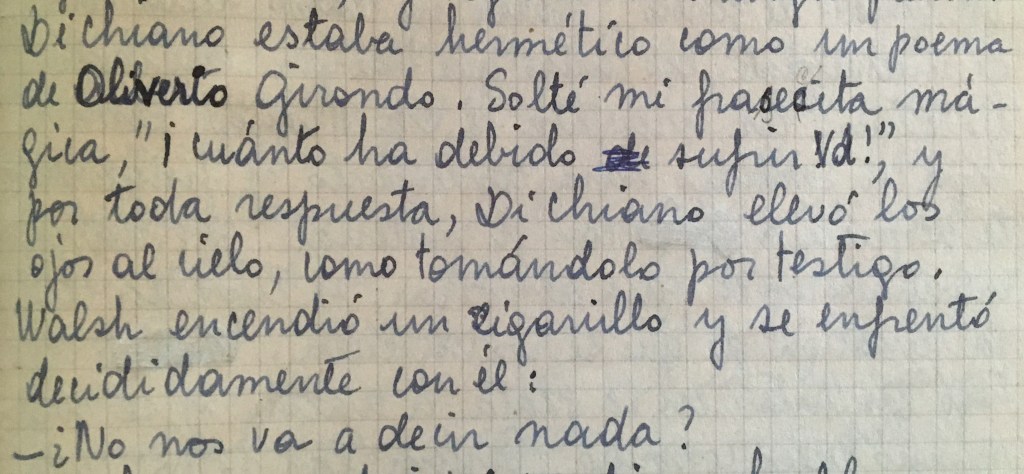 Di Chiano estaba hermético como un poema
de Oliverio Girondo. Solté mi frasecita má-
gica, "¡cuánto ha debido sufrir Vd!", y
por toda respuesta, Di Chiano elevó los
ojos al cielo, como tomándolo por testigo.
Walsh encendió un cigarrillo y se enfrentó
decididamente con él:
—¿No nos va a decir nada?